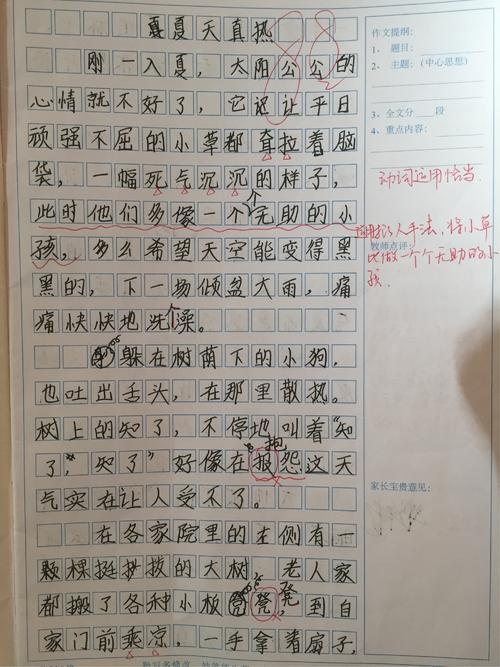 夏夏天真热
刚一入夏，太阳公公的
心情就不好了，它还让平日
顽强不屈的小草都耷拉着脑
袋，一幅死气沉沉的样子，
此时他们多像一个个无助的小
孩，多么希望天空能变得黑
黑的，下一场倾盆大雨，痛
痛快快地洗个澡。
躲在树荫下的小狗，
也吐出舌头，在那里散热。
树上的知了，不停地叫着“知
了，知了”好像在报抱怨这天
气实在让人受不了。
在各家院里的左侧有一
颗棵挺拨的大树，老人家
都搬了各种小板凳凳，到自
家门前乘凉，一手拿着扇子，
作文提纲：
1、 题目：
2、 主题：（中心思想）
3、全文分 段
4、重点内容：
动词运用恰当
手法，将小草
教师点评：
比做一个个无助的小
孩
家长宝贵意见：